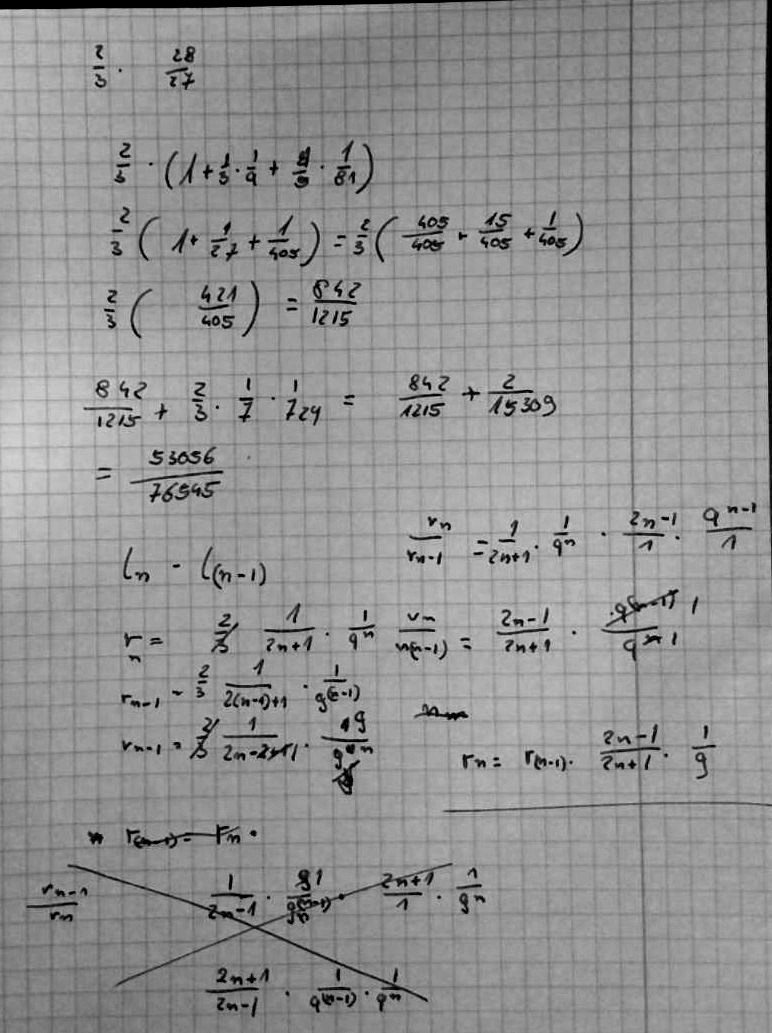 2/3 · 28/27
2/3 · (1 + 1/3 · 1/9 + 1/5 · 1/81)
2/3 (1 + 1/27 + 1/405) = 2/3 (405/405 + 15/405 + 1/405)
2/3 (421/405) = 842/1215
842/1215 + 2/3 · 1/7 · 1/729 = 842/1215 + 2/15309
= 53056/76545
r_n/r_{n-1} = 1/(2n+1) · 1/9^n · (2n-1)/1 · 9^{n-1}/1
l_n - l_{(n-1)}
r_n = 2/3 1/(2n+1) · 1/9^n
r_n/r_{(n-1)} = (2n-1)/(2n+1) ·
r_{n-1} = 2/3 1/(2(n-1)+1) · 1/9^{(n-1)}
r_{n-1} = 2/3 1/(2n-2+1) · 9/9^n
r_n = r_{(n-1)} · (2n-1)/(2n+1) · 1/9
r_{(n-1)} = r_n ·
r_{n-1}/r_n 1/(2n-1) · (2n+1)/1 · 1/9^n
(2n+1)/(2n-1) · 1/9^{(n-1)} · 1/9^n